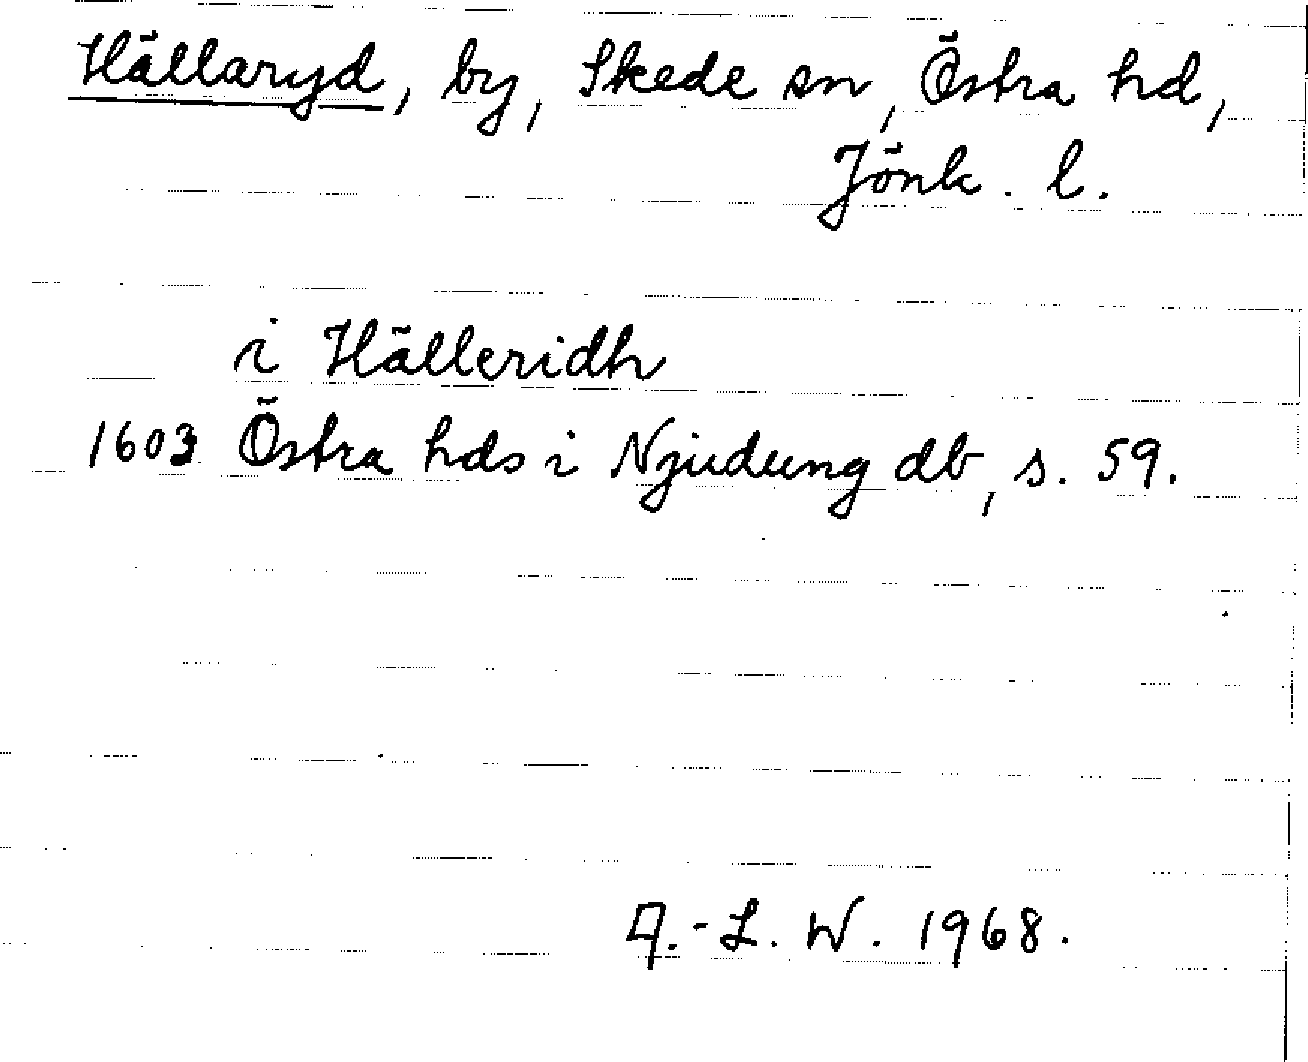 Hällaryd, by, Skede sn, Östra hd,
Jönk. l.
i Hälleridh
1603 Östra hds i Njudung db, s. 59.
A.-L. W. 1968.